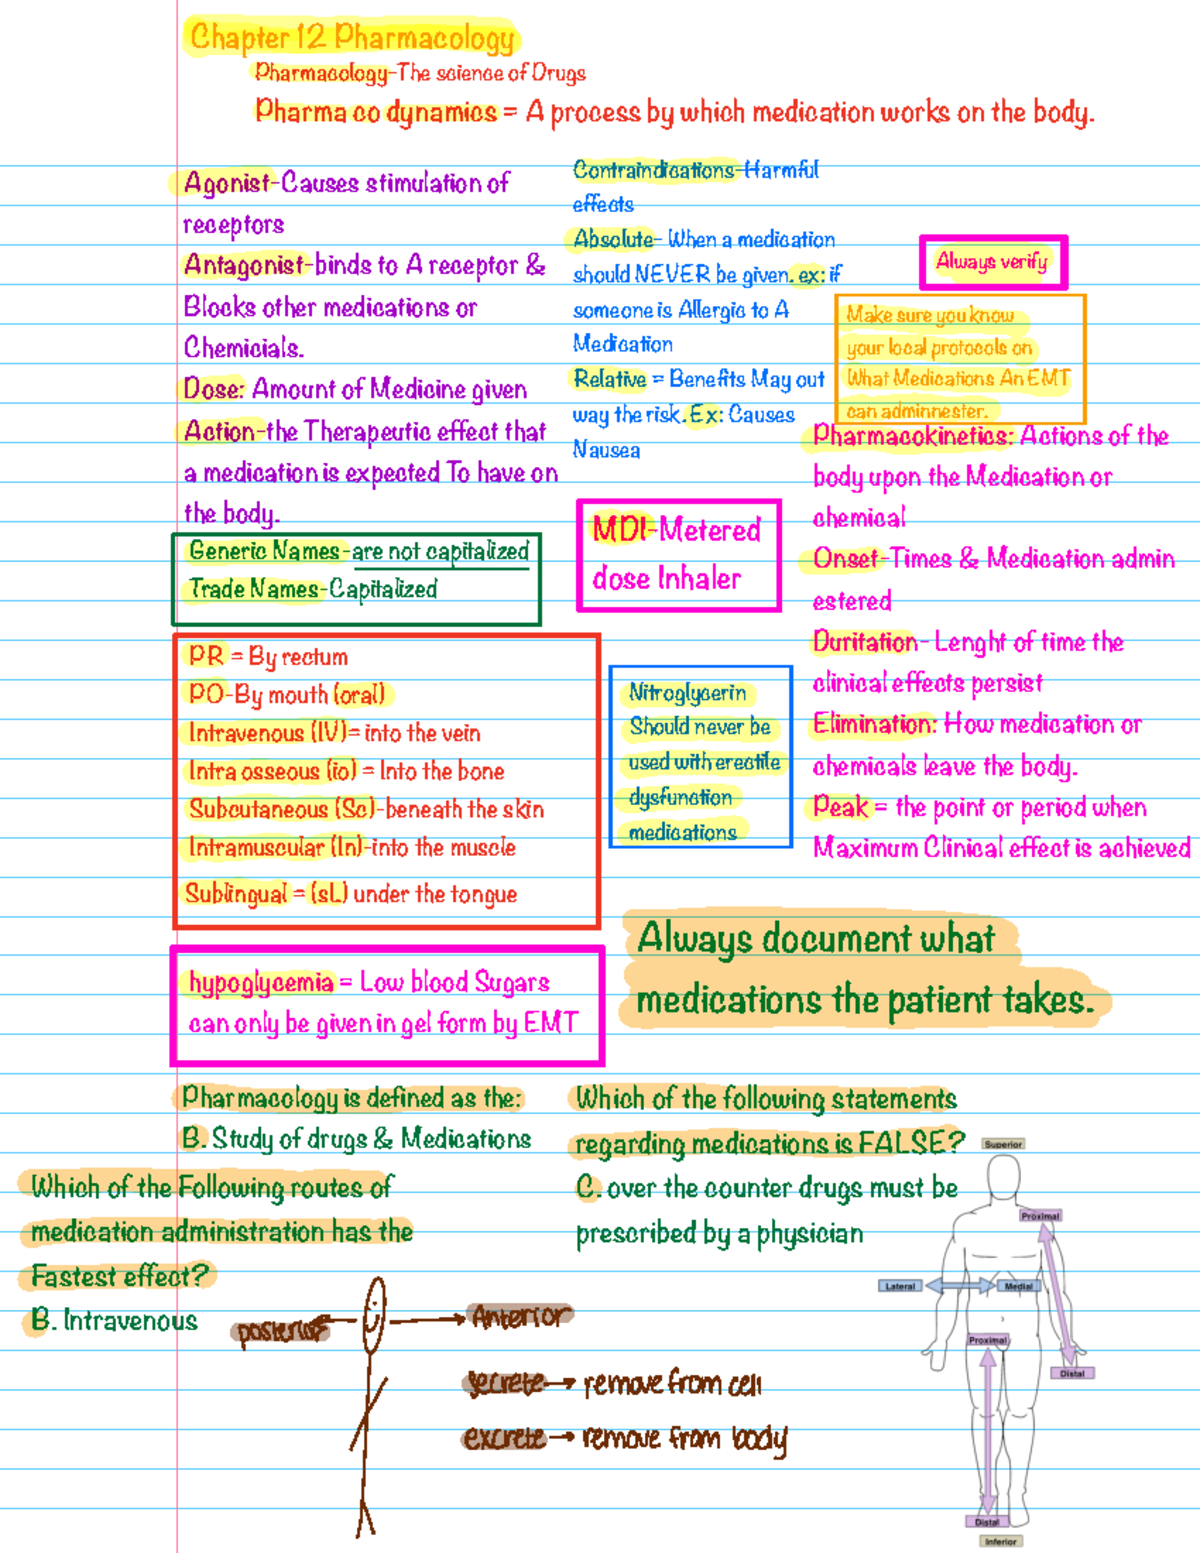 Chapter 12 Pharmacology
Pharmacology-The science of Drugs
Pharma co dynamics = A process by which medication works on the body.
Agonist-Causes stimulation of
receptors
Antagonist-binds to A receptor &
Blocks other medications or
Chemicials.
Dose: Amount of Medicine given
Action-the Therapeutic effect that
a medication is expected To have on
the body.
Generic Names-are not capitalized
Trade Names-Capitalized
PR = By rectum
PO-By mouth (oral)
Intravenous (IV)= into the vein
Intra osseous (io) = Into the bone
Subcutaneous (Sc)-beneath the skin
Intramuscular (In)-into the muscle
Sublingual = (sL) under the tongue
hypoglycemia = Low blood Sugars
can only be given in gel form by EMT
Contraindications-Harmful
effects
Absolute- When a medication
should NEVER be given. ex: if
someone is Allergic to A
Medication
Relative = Benefits May out
way the risk. Ex: Causes
Nausea
MDI-Metered
dose Inhaler
Nitroglycerin
Should never be
used with erectile
dysfunction
medications
Always verify
Make sure you know
your local protocols on
What Medications An EMT
can adminnester.
Pharmacokinetics: Actions of the
body upon the Medication or
chemical
Onset-Times & Medication admin
estered
Duritation- Lenght of time the
clinical effects persist
Elimination: How medication or
chemicals leave the body.
Peak = the point or period when
Maximum Clinical effect is achieved
Always document what
medications the patient takes.
Pharmacology is defined as the:
B. Study of drugs & Medications
Which of the Following routes of
medication administration has the
Fastest effect?
B. Intravenous
Which of the following statements
regarding medications is FALSE?
C. over the counter drugs must be
prescribed by a physician
posterior
Anterior
secrete → remove from cell
excrete → remove from body
Superior
Proximal
Lateral
Medial
Proximal
Distal
Distal
Inferior